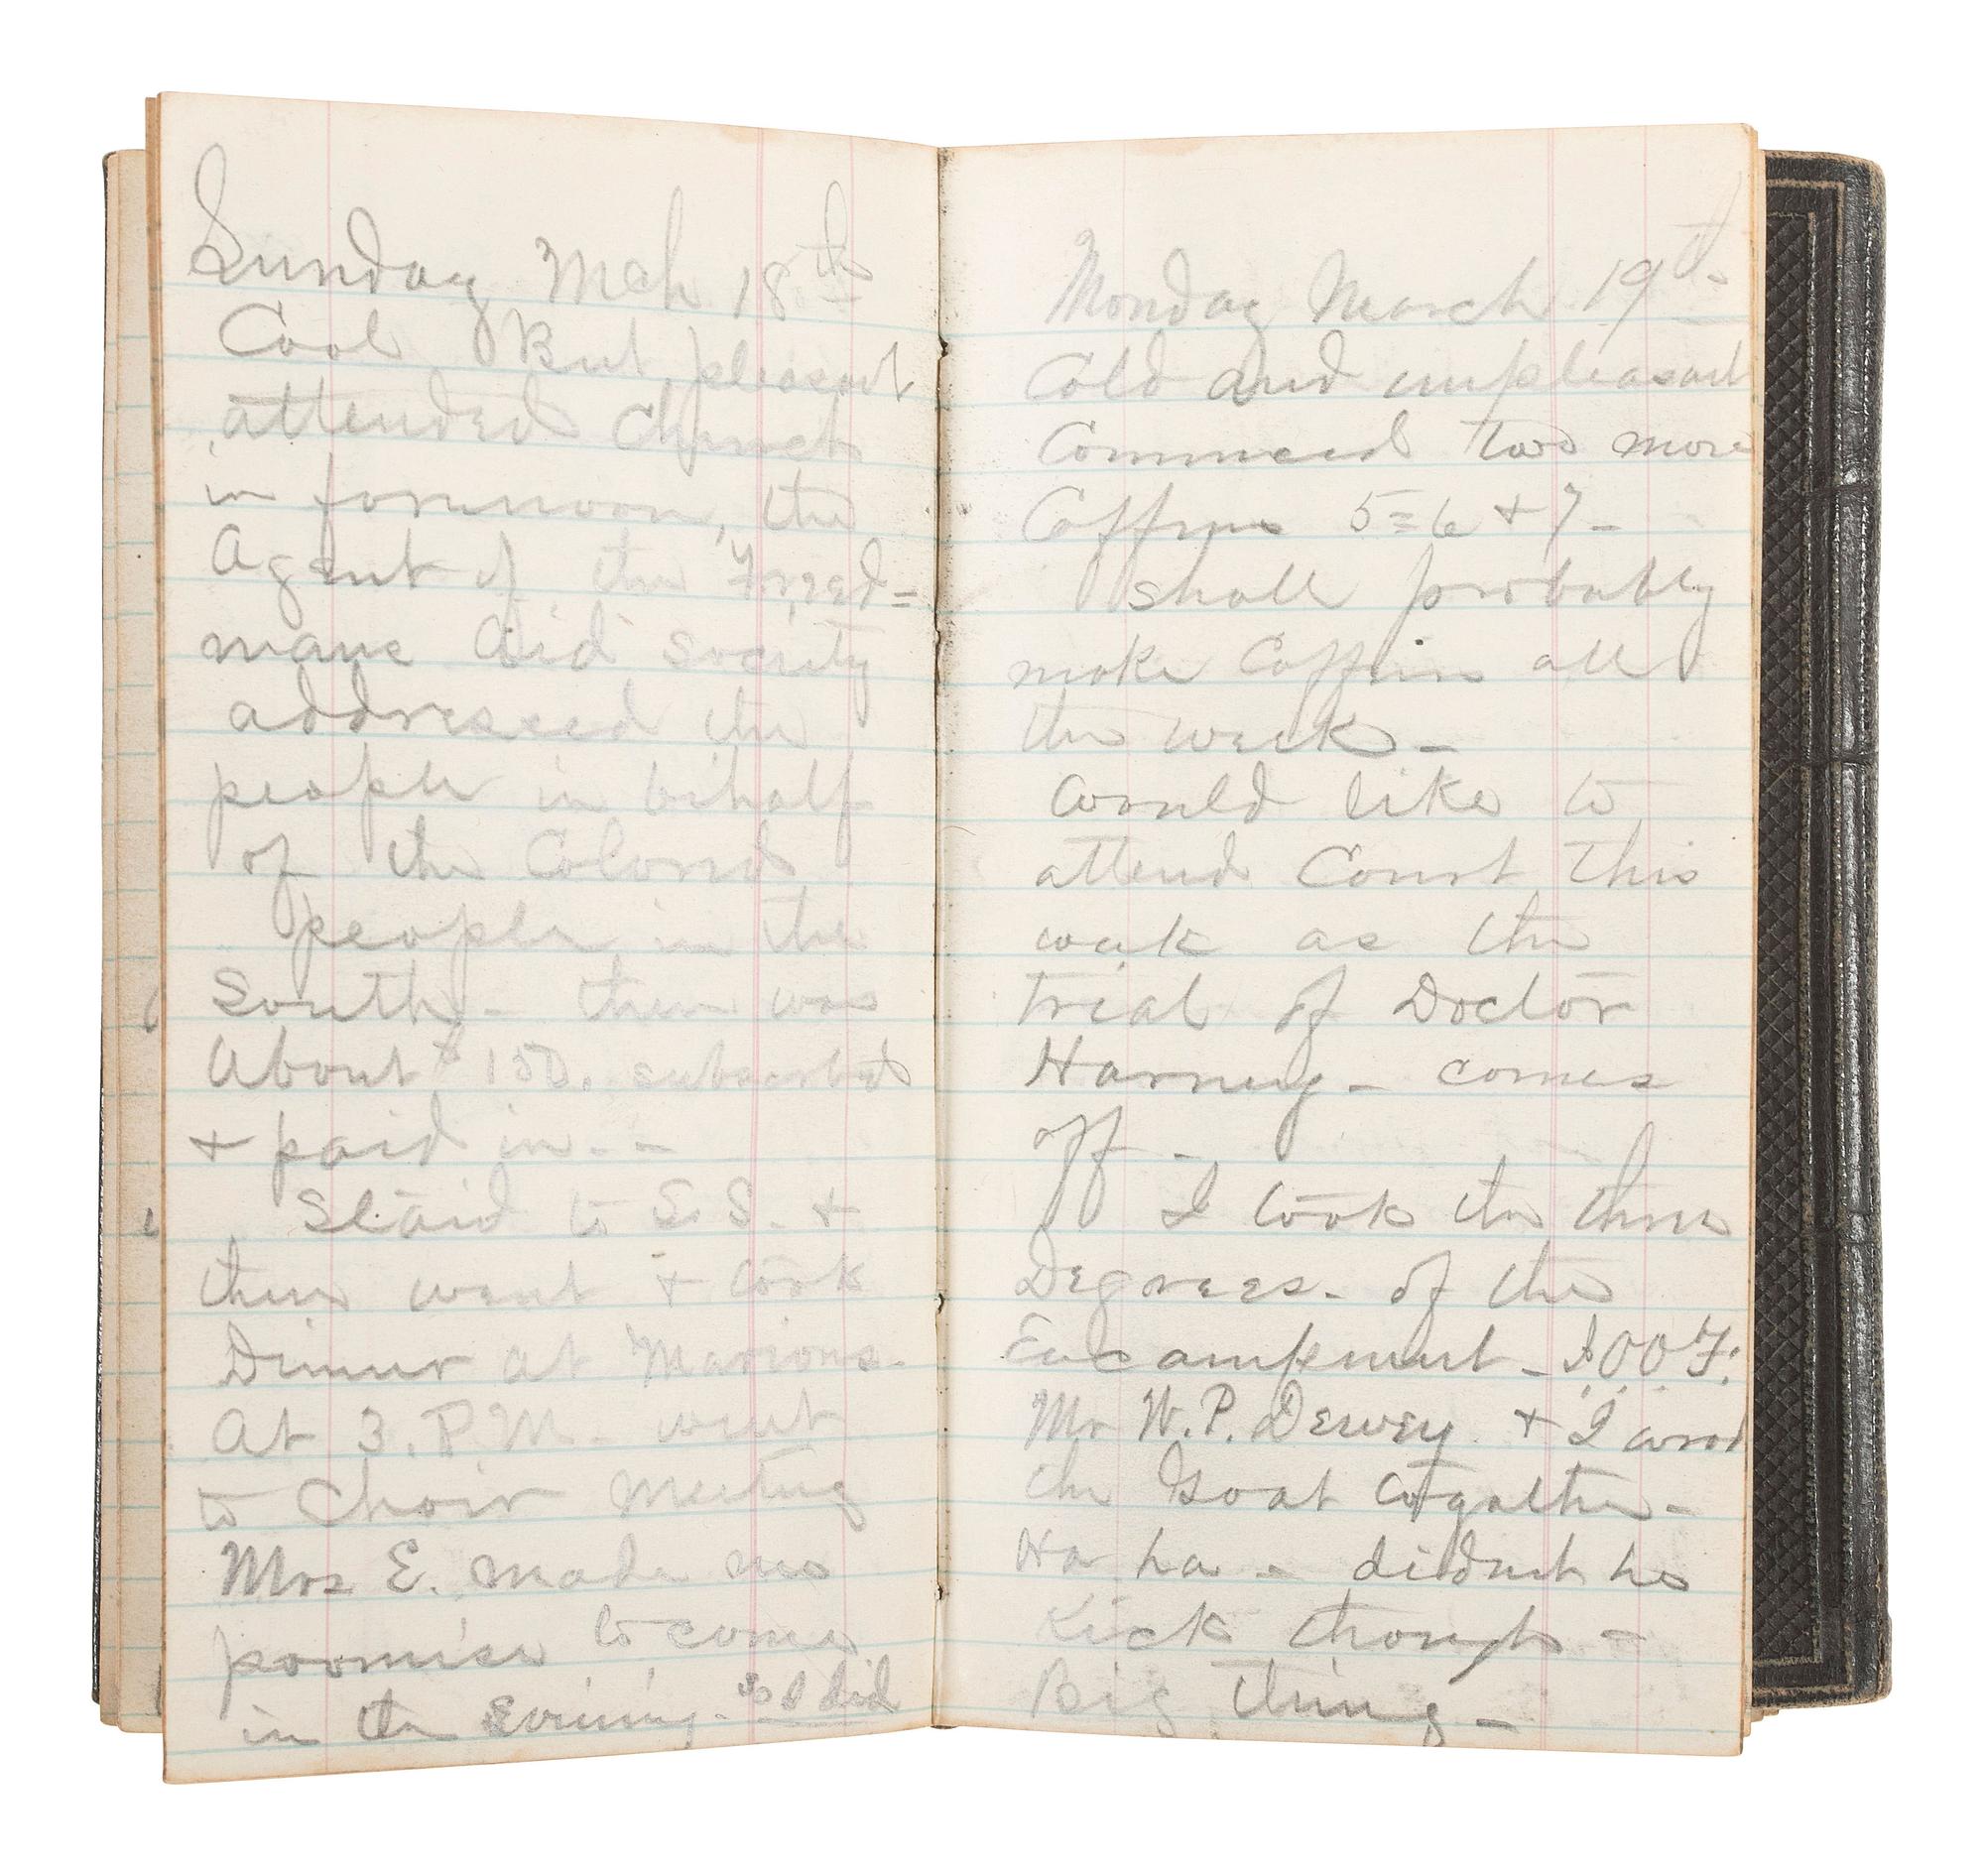 Sunday Mch 18th
Cool But pleasant
attended Church
in forenoon, the
Agent of the Freed=
mans Aid Society
addressed the
people in behalf
of the Colored
people in the
South - there was
About $150. subscribed
& paid in - -
Staid to S. S. &
then went & took
Dinner at Marions -
At 3. P.M. went
to Choir Meeting
Mrs E. made me
promise to come
in the Evening - so I did
Monday March 19th -
Cold and unpleasant
Commeced two more
Coffins 5=6 & 7 -
shall probably
make Coffins all
the week -
Would like to
attend Court this
week as the
trial of Doctor
Harvey - comes
off -
I took the three
Degrees - of the
Encampment - I.OO.F.
Mr W. P. Dewey & I
the Goat togather -
Ha ha - didnt he
Kick though -
Big thing -